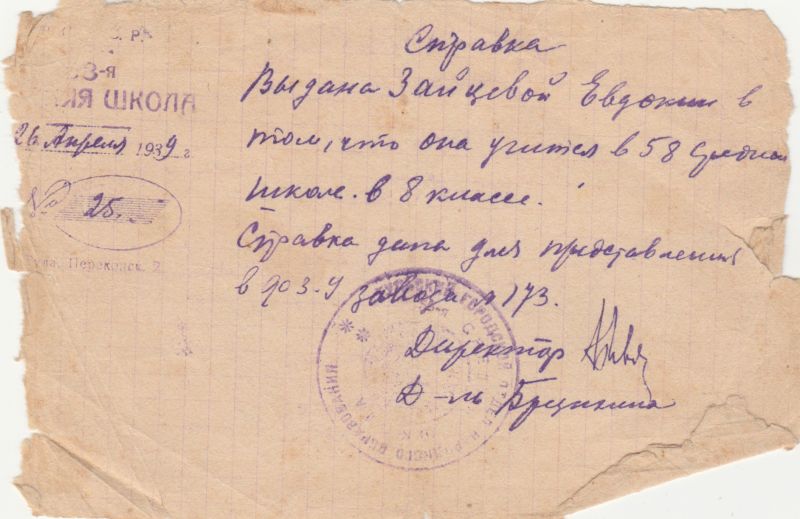 Р.
8-я
ШКОЛА
26 Апреля 1939 г.
№ 25.
Тула, Перекопск. 2
Справка
Выдана Зайцевой Евдокии в
том, что она учится в 58 средней
школе. в 8 классе.
Справка дана для представления
в завода № 173.
Директор
Д-ль
ГОРОДСКОЙ ОТДЕЛ НАРОДНОГО ОБРАЗОВАНИЯ